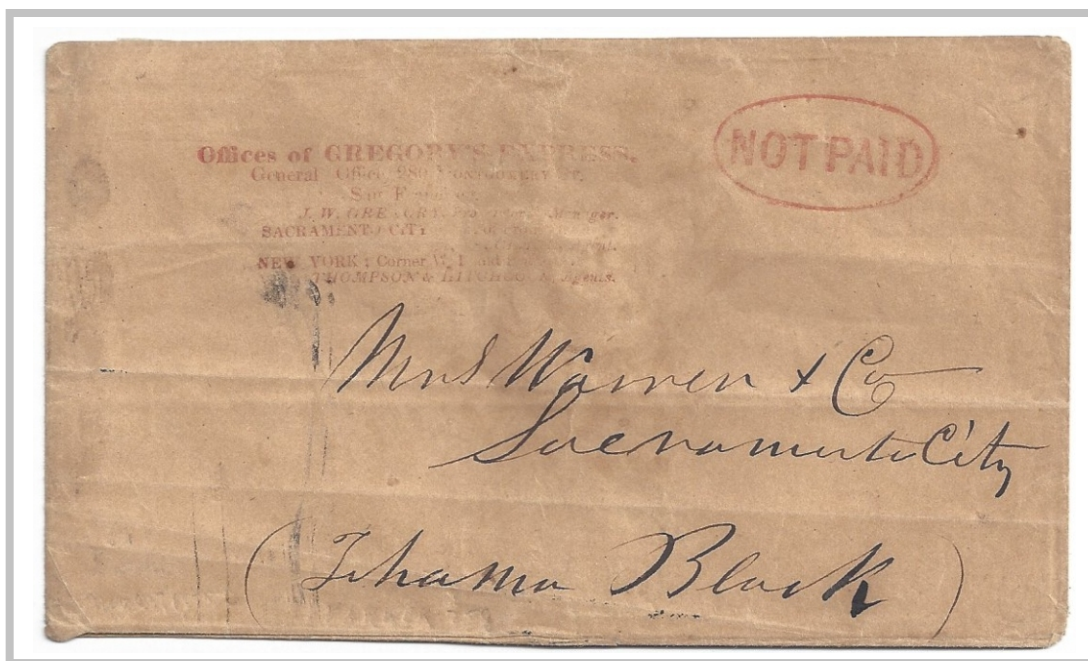 NOT PAID
Offices of GREGORY'S EXPRESS.
General Office, 280 MONTGOMERY ST.
San
J. W. GREGORY,
SACRAMENTO CITY
NEW YORK: Corner and
THOMPSON & HITCHCOCK, Agents.
Warren & Co
Sacramento City
(Tehama Block)